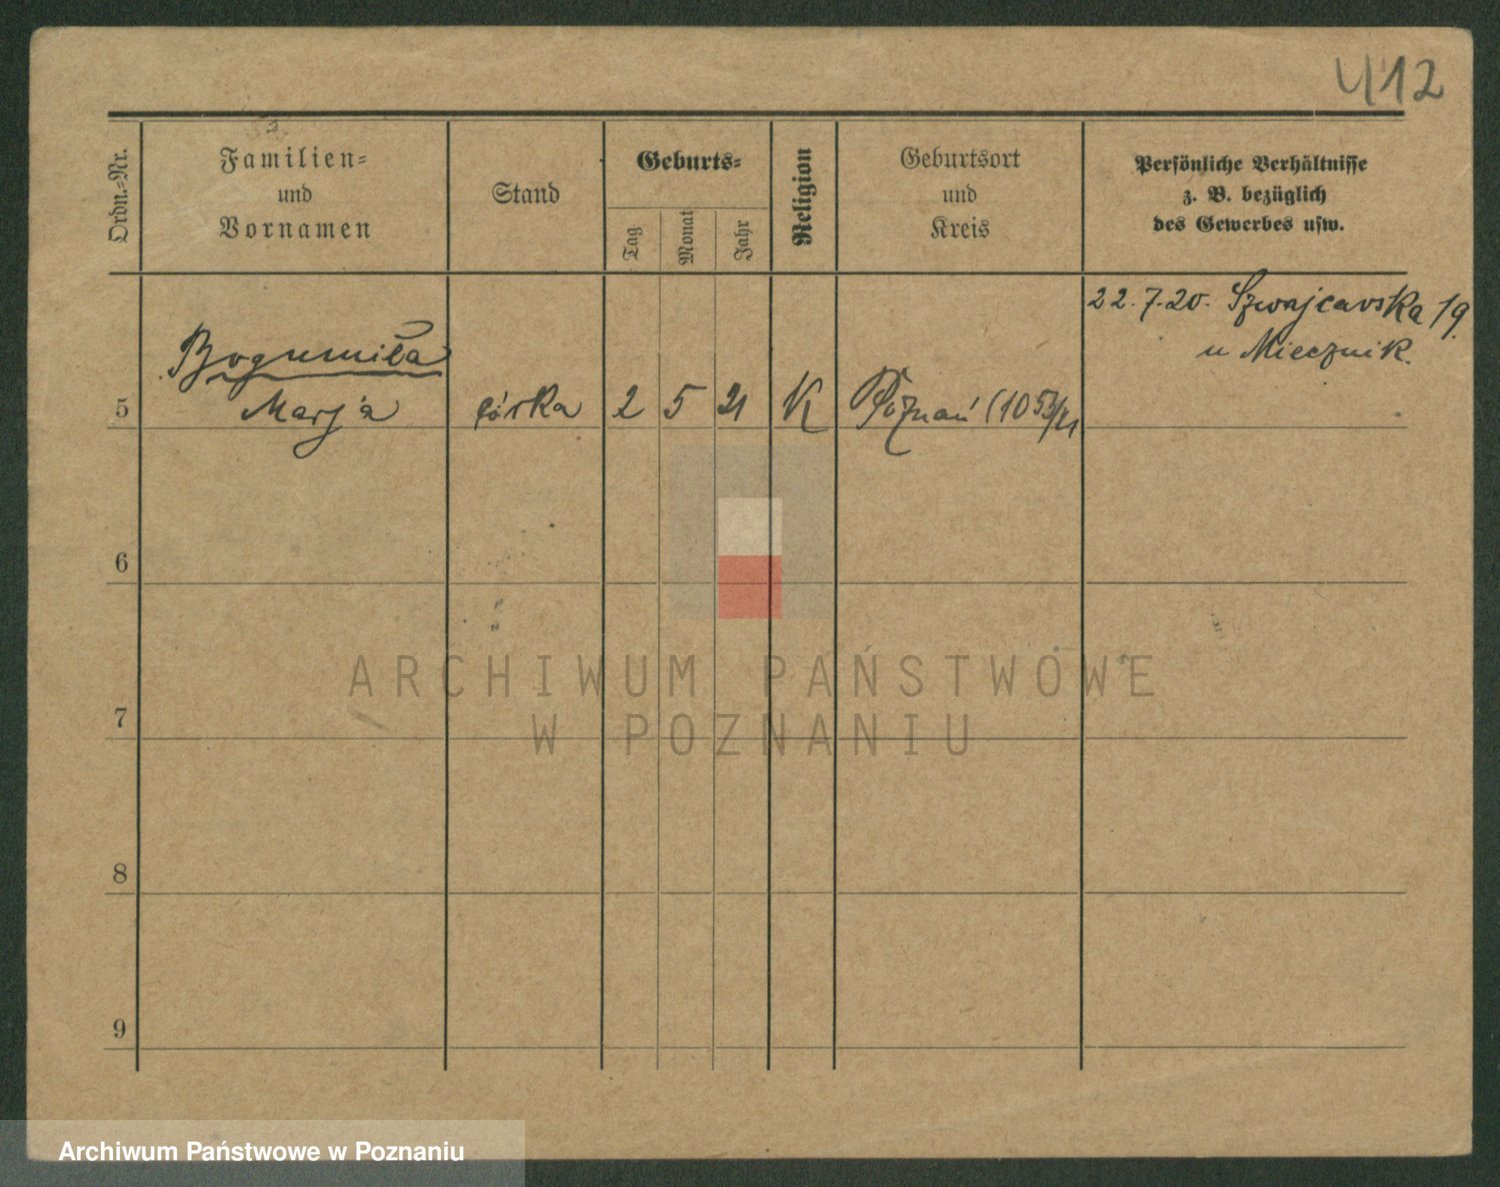 412
Ordn.-Nr.
Familien-
und
Vornamen
Stand
Geburts-
Tag
Monat
Jahr
Religion
Geburtsort
und
Kreis
Persönliche Verhältnisse
z. B. bezüglich
des Gewerbes usw.
22.7.20. Szwajcarska 19.
u Miecznik.
Bogumiła
5 Marja córka 2 5 21 K Poznań (1053/21
6
7
8
9
ARCHIWUM PAŃSTWOWE
W POZNANIU
Archiwum Państwowe w Poznaniu